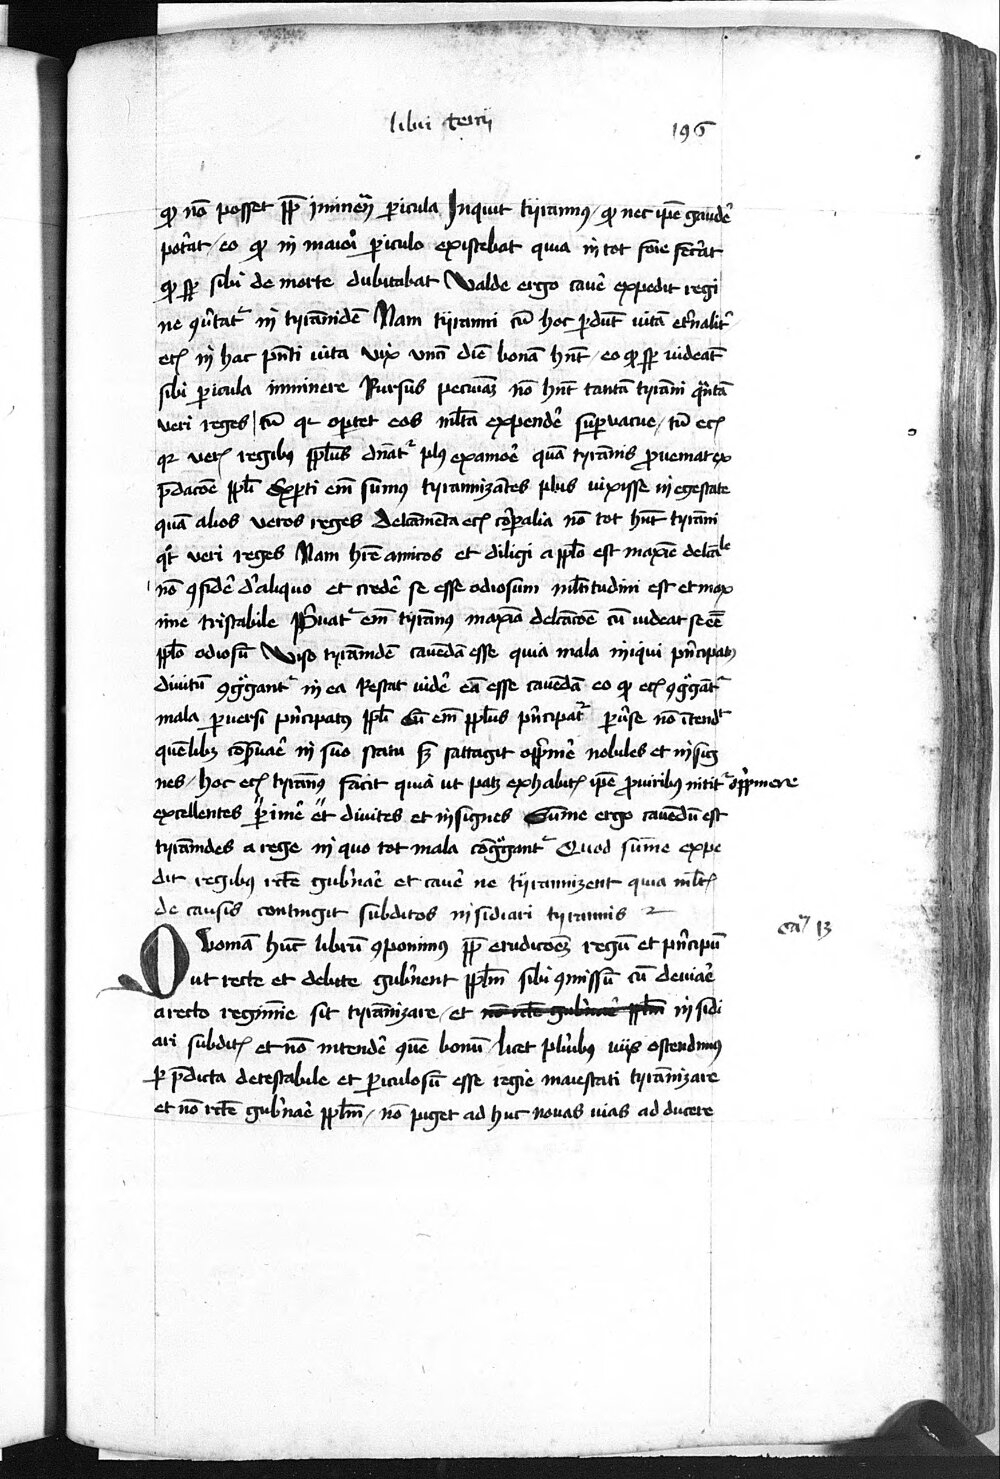 libri tercij
196
qd nō posset ꝓp̄ iminēcia pericula Inquit tyrannus / qd nec ip̄e gaudē
pot̄at / eo qd in maiori periculo existebat quia in tot for̄e fec̄at
qd semp̄ sibi de morte dubitabat Valde ergo cavē expedit regi
ne ꝯu̓tat̄ in tyrāmidē Nam tyranni cū hoc ꝑdūt uitā et̓nalit̓
etꝫ in hac pn̄ti uita vix vnā diē bonā hn̄t / eo qd semp̄ uideāt̄
sibi pericula imminere Rursus pecuniā nō hn̄t tantā tyrāni qn̄tā
veri reges / tū qꝛ oportet eos ml̄ta expendē sup̄vacue / tū etꝫ
qꝛ veris regibus ppl̄us dn̄at̄ plus ex amor̄e quā tyrānis ꝓueniat ex
p̄dacōe ppl̄i Exp̄ti em̄ sumus tyrannizātes plus vixisse in egestate
quā alios veros reges Delc̄amēta etꝫ corp̄alia nō tot hn̄t tyrāni
qt̄ veri reges Nam hr̄e amicos et diligi a ppl̄o est maxīe delc̄ale
nō ꝯfidē d̓ aliquo et credē se esse odiosum ml̄titudini est et max
ime tristabile Priuat̄ em̄ tyrān̄us maxīa delc̄acōe cū uideat se eē
ppl̄o odiosū Viso tyrāmidē cavēdā esse quia mala iniqui pn̄cipatus
diuitū ꝯg̓gant̄ in ea Restat uidē eā esse cavēdā eo qd etꝫ ꝯg̓gāt̄
mala peruersi pn̄cipatus ppl̄i Cū em̄ ppl̄us pn̄cipat̄ peru̓se nō ītendit
quēlibꝫ cōs̓uāē in suo statu sꝫ sattagit opp̄mē nobiles et insig
nes / hoc etꝫ tyrān̄us facit quia ut patꝫ ex habitꝫ ip̄e ꝓ uiribus nitit̄ opp̄mere
excellentes ꝑimē et diuites et insignes Sūme ergo cavendū est
tyrāmides a rege in quo tot mala cōg̓gant̄ Quod sūme expe
dit regibus rc̄te gub̓nāē et cavē ne tyrannizent quia ml̄tꝫ
de causis contingit subditos insidiari tyrannis
Ca 13
Qvoniā hūc librū ꝯponimus ꝓp̄ erudicōeꝫ regū et pn̄cipū
ut recte et debite gub̓nent ppl̄m sibi ꝯmissū cū deuiāē
a recto regimīe sit tyrānizare / et nō rc̄te gub̓nāē ppl̄m insidi
ari subditꝫ et nō intendē quē bonū / licet plu̓ibus uijs ostendimus
ꝑ p̄dicta detestabile et ꝑiculosū esse regie maiestati tyrānizare
et nō rc̄te gub̓nāē ppl̄m / nō piget ad huc novas uias ad ducere